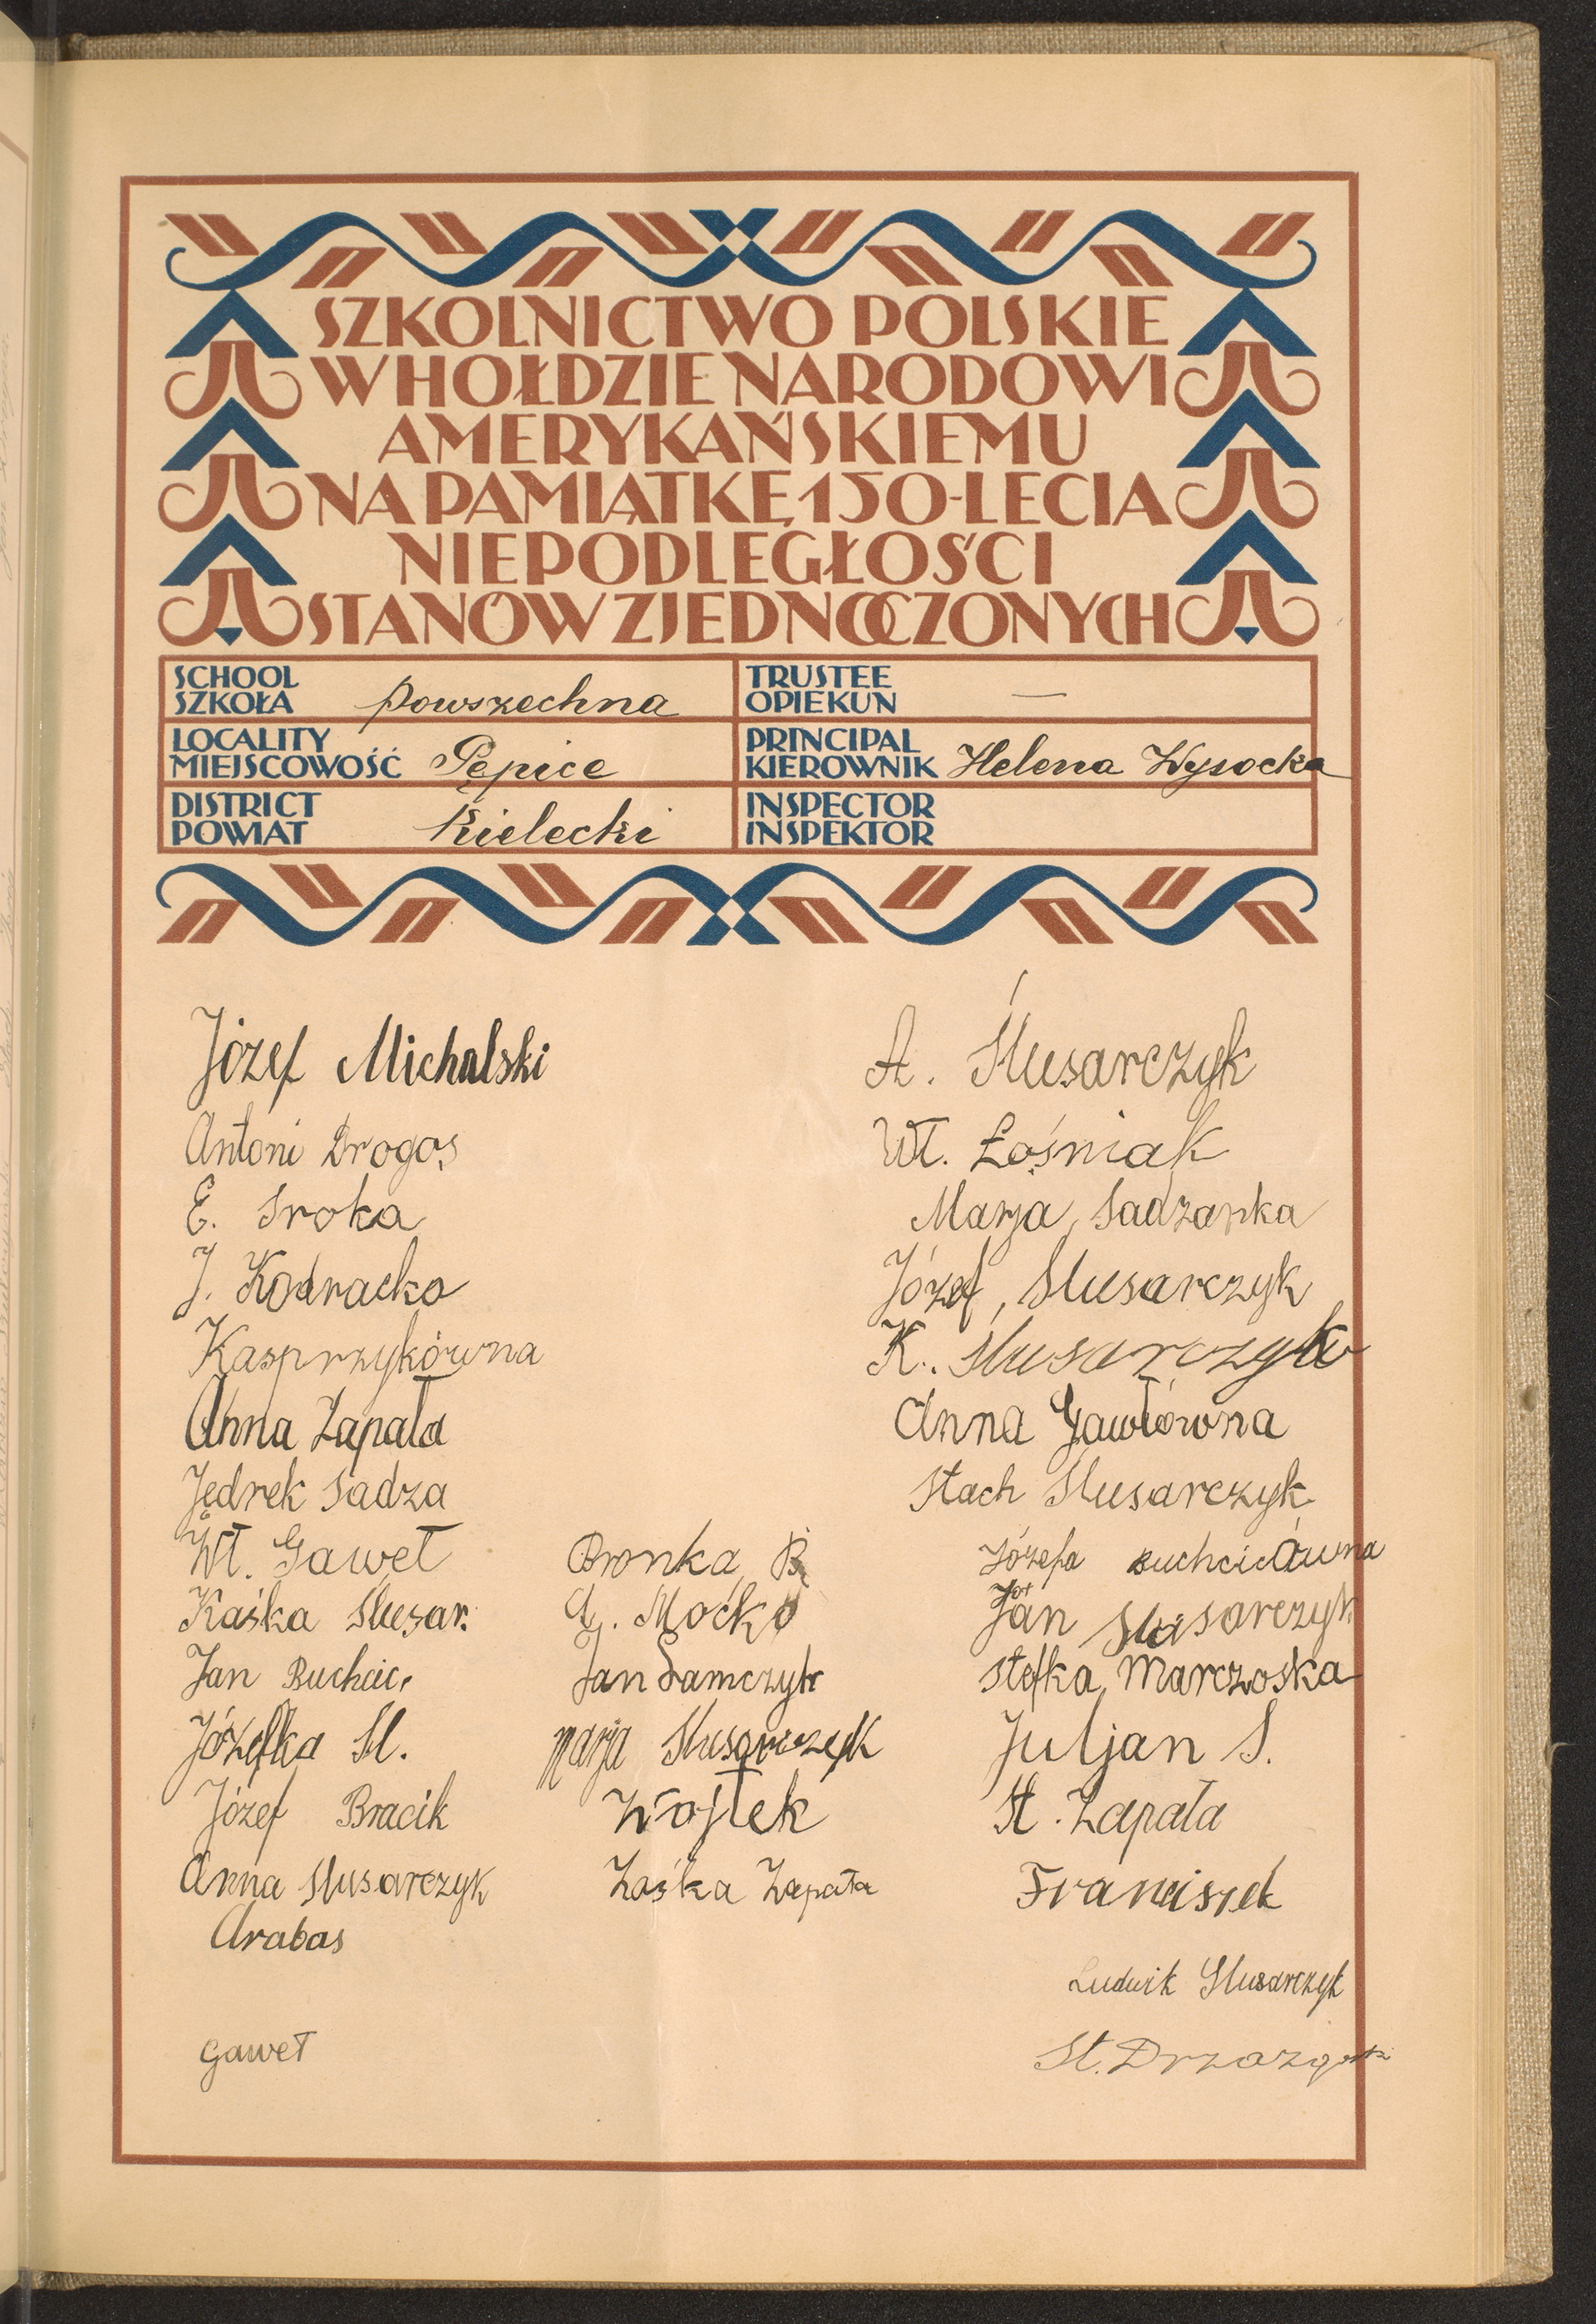 SZKOLNICTWO POLSKIE
W HOŁDZIE NARODOWI
AMERYKAŃSKIEMU
NA PAMIĄTKĘ 150-LECIA
NIEPODLEGŁOŚCI
STANÓW ZJEDNOCZONYCH
SCHOOL
SZKOŁA powszechna
TRUSTEE
OPIEKUN —
LOCALITY
MIEJSCOWOŚĆ Pępice
PRINCIPAL
KIEROWNIK Helena Wysocka
DISTRICT
POWIAT Kielecki
INSPECTOR
INSPEKTOR
Józef Michalski
Antoni Drogoś
E. Sroka
J. Kodracka
Kasprzykówna
Anna Zapała
Jędrek Sadza
Wł. Gaweł
Kaśka Ślusar.
Jan Buchcic.
Józefka Śl.
Józef Bracik
Anna Slusarczyk
Arabas
Gaweł
Bronka B
A. Moćko
Jan Samczyk
Marja Slusarczyk
Wojtek
Zośka Zapała
A. Ślusarczyk
Wł. Łośniak
Marja Sadzanka
Józef Slusarczyk
K. Slusarczyk
Anna Gawłówna
Stach Slusarczyk
Józefa Buchcicówna
Jan Slusarczyk
Stefka Marczoska
Juljan S.
St. Zapała
Franciszek
Ludwik Slusarczyk
St.